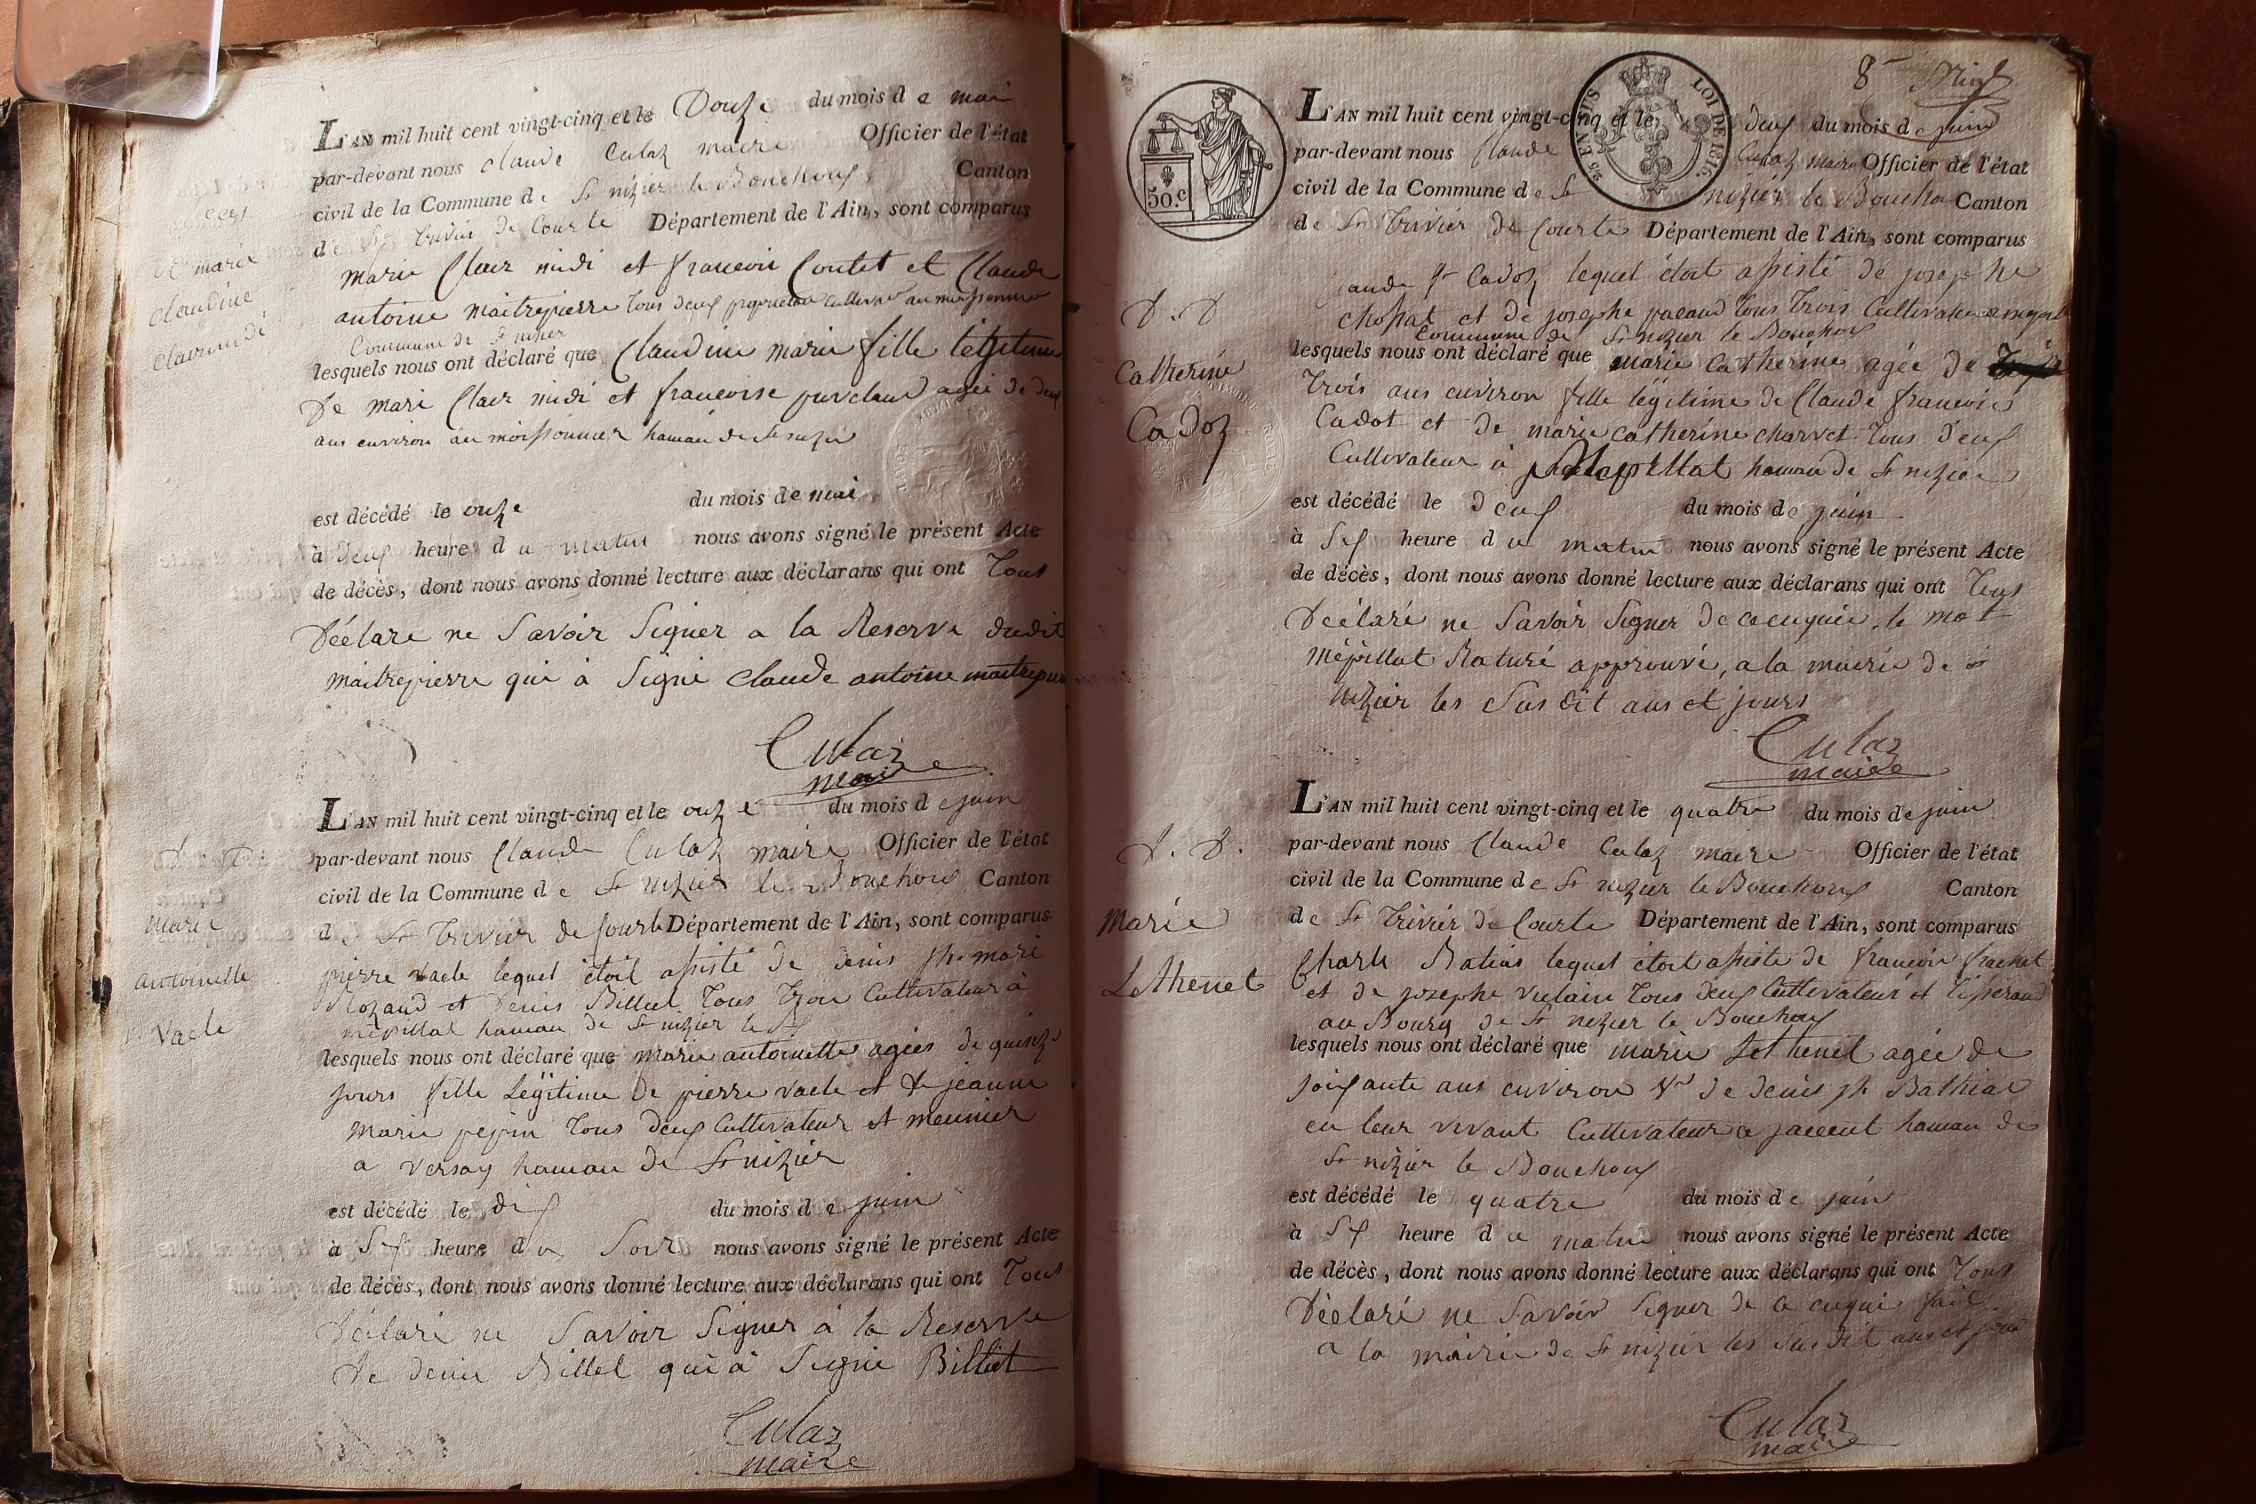 L'AN mil huit cent vingt-cinq et le Douze du mois de mai
par-devant nous claude Culaz maire Officier de l'état
civil de la Commune de St nizier le Bouchoux Canton
de St Trivier De Courte Département de l'Ain, sont comparus
marie Clair midi et francois Coutet et Claude
antoine maitrepierre tous deux proprietaire cultivateur au moissonnier
Commune de St nizier
lesquels nous ont déclaré que Claudine marie fille légitime
De marie Clair midi et francoise agée de deux
ans environ au moissonnier hameau de St nizier
est décédé le onze du mois de mai
à deux heure du matin nous avons signé le présent Acte
de décès, dont nous avons donné lecture aux déclarans qui ont Tous
Déclaré ne Savoir Signer a la Reserve dudit
maitrepierre qui à Signé claude antoine maitrepierre
Culaz
maire
Décès
De marie
claudine
clairmidi
L'AN mil huit cent vingt-cinq et le onze du mois de juin
par-devant nous Claude Culaz maire Officier de l'état
civil de la Commune de St nizier le Bouchoux Canton
de St Trivier de Courte Département de l'Ain, sont comparus
pierre vacle lequel étoit assisté de denis jh mari
Rozand et Denis Billiet Tous Trois Cultivateur à
mépillat hameau de St nizier le Bx
lesquels nous ont déclaré que marie antoinette agées de quinze
jours fille Légitime De pierre vacle et de jeanne
marie pepin Tous deux Cultivateur et meunier
a versay hameau de St nizier
est décédé le dix du mois de juin
à Six heure du Soir nous avons signé le présent Acte
de décès, dont nous avons donné lecture aux déclarans qui ont Tous
Déclaré ne Savoir Signer à la Reserve
De denis Billet qui à Signé Billiet
Culaz
maire
D. D.
Marie
antoinette
Vacle
8e
50.c
25 EN SUS
LOI DE 1816.
L'AN mil huit cent vingt-cinq et le deux du mois de juin
par-devant nous Claude Culaz maire Officier de l'état
civil de la Commune de St nizier le Boucho Canton
de St Trivier De Courte Département de l'Ain, sont comparus
Claude fs Cadoz lequel étoit assisté de josephe
chossat et de josephe pacaud tous trois Cultivateur a mepillat
Commune de St nizier le Bouchoux
lesquels nous ont déclaré que marie catherine agée de
Trois ans environ fille légitime de Claude francois
Cadot et de marie catherine charvet Tous deux
Cultivateur à mépillat hameau de St nizier
est décédé le deux du mois de juin
à Six heure du matin nous avons signé le présent Acte
de décès, dont nous avons donné lecture aux déclarans qui ont Tous
Déclaré ne Savoir Signer de ce enquis, le mot
Mépillat Raturé approuvé, a la mairie de St
nizier les Sus dit ans et jours
Culaz
maire
D. D
Catherine
Cadoz
L'AN mil huit cent vingt-cinq et le quatre du mois de juin
par-devant nous Claude Culaz maire Officier de l'état
civil de la Commune de St nizier le Bouchoux Canton
de St Trivier de Courte Département de l'Ain, sont comparus
Charle Batias lequel étoit assisté de francois frachet
et de josephe vulain Tous deux Cultivateur et Tisserand
au Bourg de St nizier le Bouchoux
lesquels nous ont déclaré que marie Lethenet agée de
soixante ans environ Ve de denis jh Bathias
en leur vivant Cultivateur a hameau de
St nizier le Bouchoux
est décédé le quatre du mois de juin
à Six heure du matin nous avons signé le présent Acte
de décès, dont nous avons donné lecture aux déclarans qui ont Tous
Déclaré ne Savoir Signer de ce enquis fait
a la mairie de St nizier les Sus dit ans et jour
Culaz
maire
D. D.
Marie
Lethenet